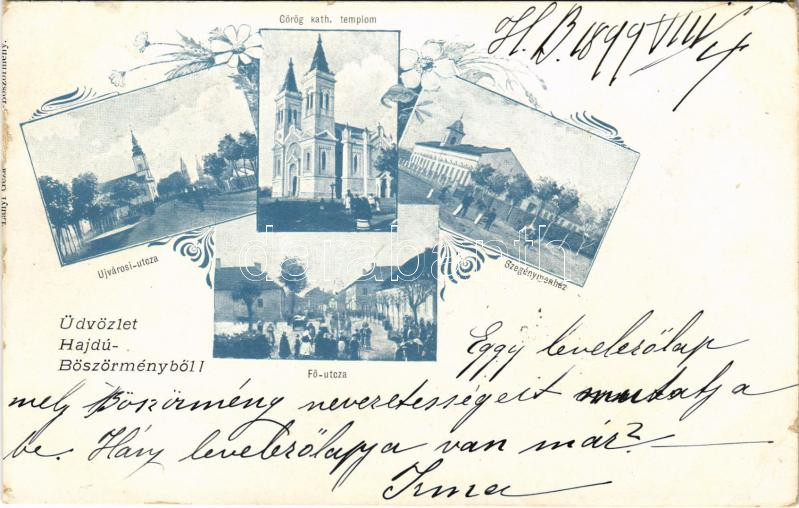 Görög kath. templom
H. B. 1899 VIII/4
Lányi Géza Böszörmény.
Ujvárosi-utcza
Szegénymenház
Fő-utcza
Üdvözlet
Hajdú-
Böszörményből!
Eggy levelezőlap
mely Böszörmény nevezetességeit mutatja
be. Hány levelezőlapja van már?
Irma
darabanth